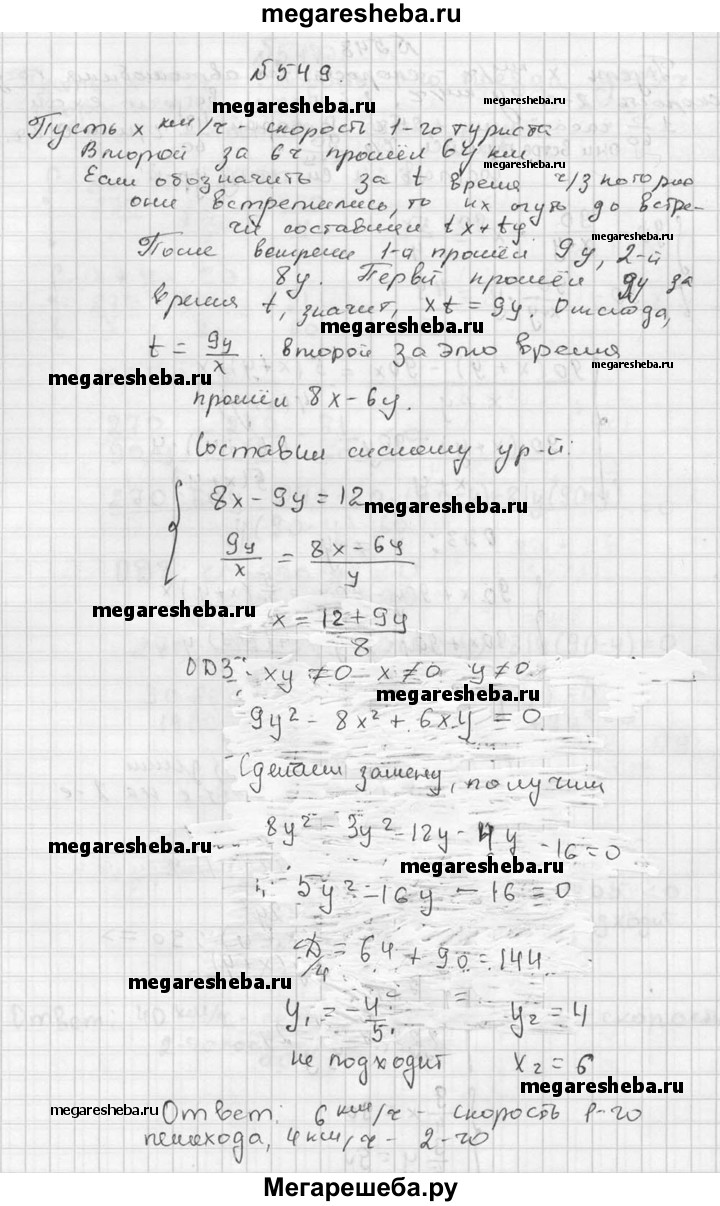 megaresheba.ru
№ 549.
megaresheba.ru
Пусть x км/ч - скорость 1-го туриста
megaresheba.ru
Второй за 6ч прошёл 6y км
Если обозначить за t время ч/з которое
они встретились, то их путь до встре-
чи составил tx + ty.
megaresheba.ru
После встречи 1-й прошёл 9y, 2-й
8y. Первый прошёл 9y за
время t, значит, xt = 9y. Отсюда,
megaresheba.ru
t = 9y/x. второй за это время
megaresheba.ru
megaresheba.ru
прошёл 8x - 6y.
Составим систему ур-й:
8x - 9y = 12
megaresheba.ru
9y/x = (8x - 6y)/y
megaresheba.ru
x = (12 + 9y)/8
ОДЗ: xy ≠ 0 x ≠ 0 y ≠ 0
megaresheba.ru
9y² - 8x² + 6xy = 0
Сделаем замену, получим
8y² - 3y² - 12y - 4y - 16 = 0
megaresheba.ru
megaresheba.ru
5y² - 16y - 16 = 0
D/4 = 64 + 90 = 144
megaresheba.ru
y₁ = -4/5 y₂ = 4
не подходит x₂ = 6
megaresheba.ru
megaresheba.ru
Ответ: 6 км/ч - скорость 1-го
пешехода, 4 км/ч - 2-го
Мегарешеба.ру